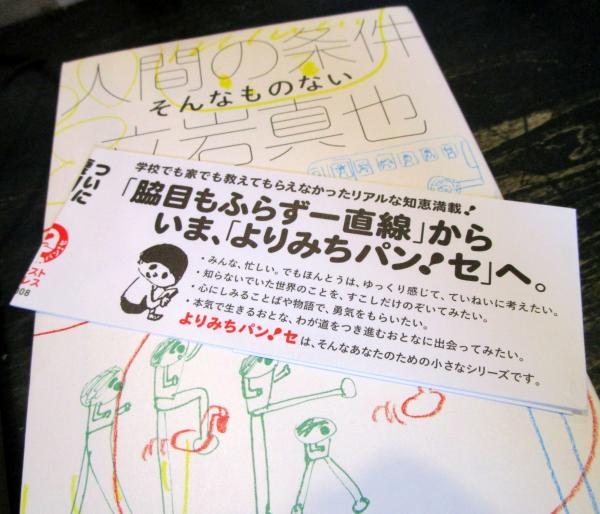 人間の条件
そんなものない
立岩真也
ついに
学校でも家でも教えてもらえなかったリアルな知恵満載!
「脇目もふらず一直線」から
いま、「よりみちパン!セ」へ。
・みんな、忙しい。でもほんとうは、ゆっくり感じて、ていねいに考えたい。
・知らないでいた世界のことを、すこしだけのぞいてみたい。
・心にしみることばや物語で、勇気をもらいたい。
・本気で生きるおとな、わが道をつき進むおとなに出会ってみたい。
よりみちパン!セは、そんなあなたのための小さなシリーズです。